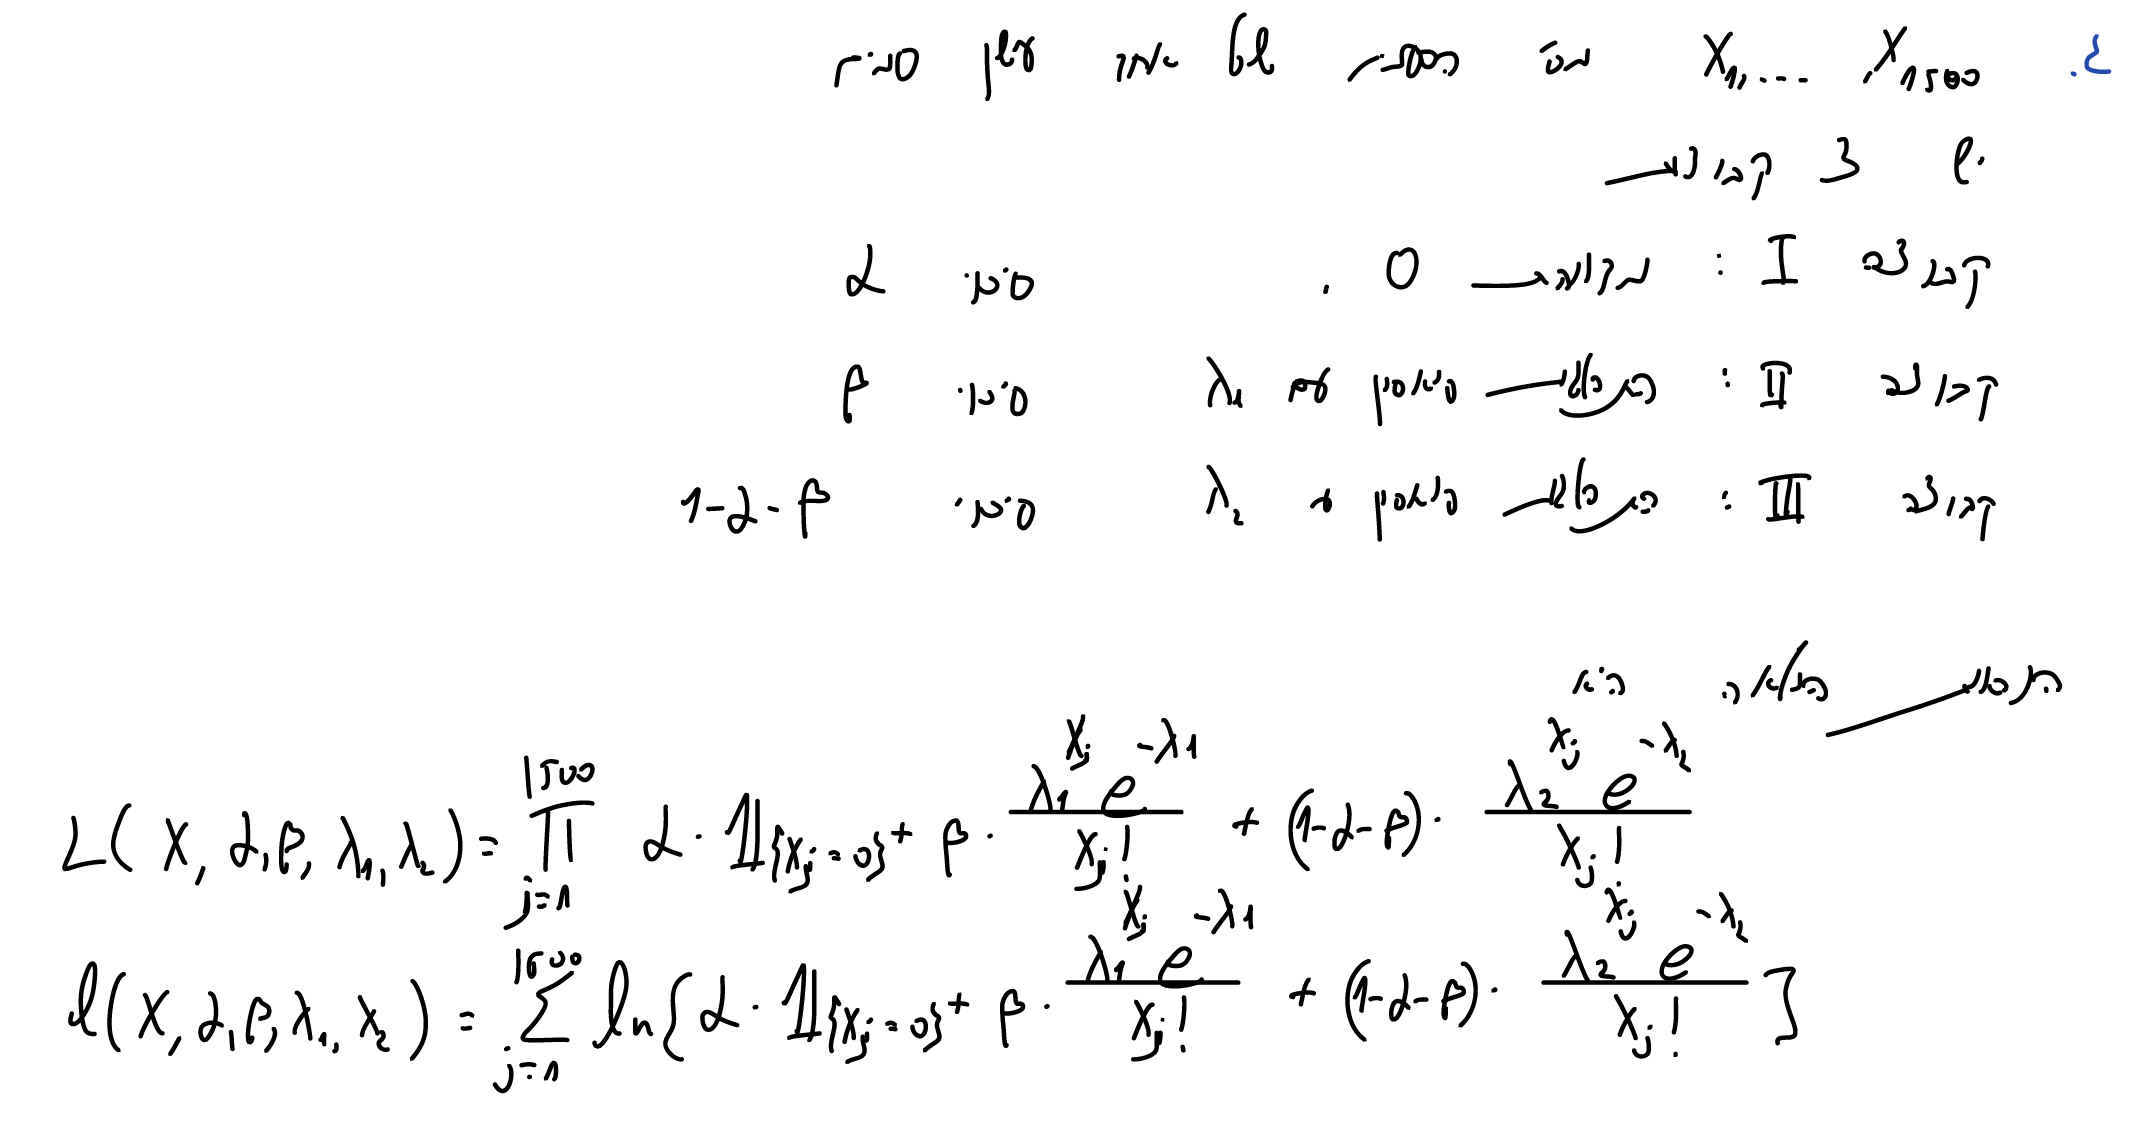 .2 X₁,... ,X₁₅₀₀ מס׳ הספרים שכל אדם
יש 3 קבוצות
קבוצה I : 0 . סיכוי α
קבוצה II : התפלגות פואסון עם λ₁ סיכוי β
קבוצה III : התפלגות פואסון λ₂ סיכוי 1-α-β
המלאה היא
L(X, α, β, λ₁, λ₂) = ∏_{j=1}^{1500} α · 𝟙_{{Xj=0}} + β · (λ₁^{Xj} e^{-λ1})/(Xj!) + (1-α-β) · (λ₂^{Xj} e^{-λ₂})/(Xj!)
l(X, α, β, λ₁, λ₂) = ∑_{j=1}^{1500} ln[α · 𝟙_{{Xj=0}} + β · (λ₁^{Xj} e^{-λ1})/(Xj!) + (1-α-β) · (λ₂^{Xj} e^{-λ₂})/(Xj!)]